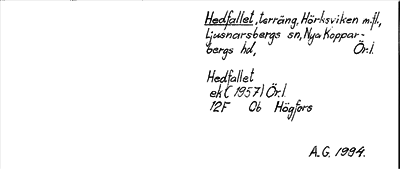 Hedfallet, terräng, Hörksviken m.fl.,
Ljusnarsbergs sn, Nya Koppar-
bergs hd, Ör.l.
Hedfallet
ek (1957) Ör.l.
12F 0b Högfors
A.G. 1994.